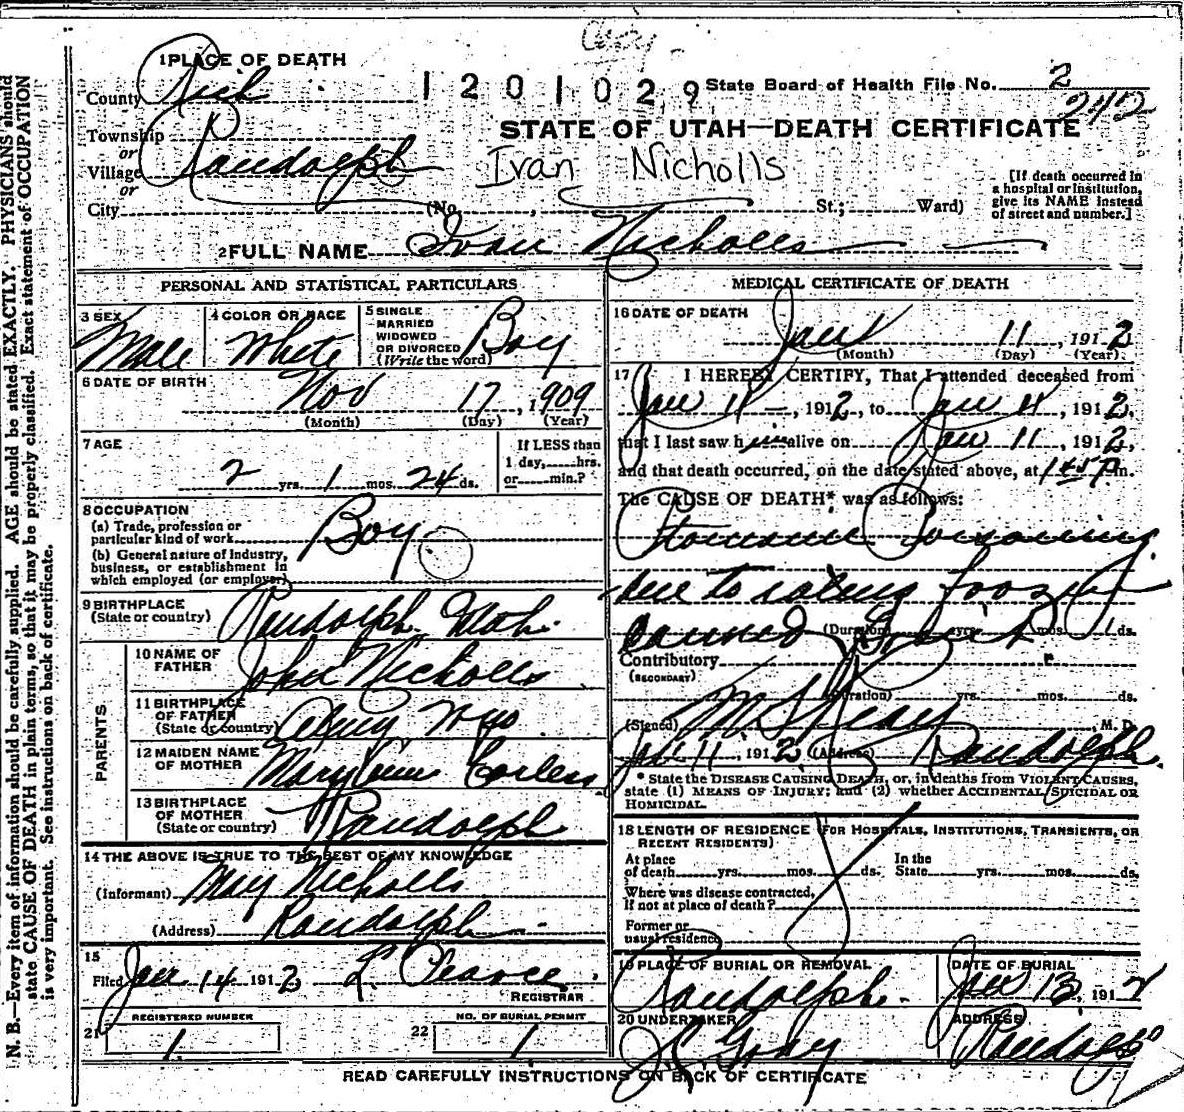 Copy
1 PLACE OF DEATH
County Rich
1201029 State Board of Health File No. 2
242
Township R
or
Village Randolph
or
STATE OF UTAH—DEATH CERTIFICATE
Ivan Nicholls
City (No. , St.; Ward)
[If death occurred in a hospital or institution, give its NAME instead of street and number.]
2 FULL NAME Ivan Nicholls
PERSONAL AND STATISTICAL PARTICULARS
3 SEX Male
4 COLOR OR RACE White
5 SINGLE MARRIED WIDOWED OR DIVORCED (Write the word) Boy
6 DATE OF BIRTH Nov 17, 1909
(Month) (Day) (Year)
7 AGE
2 yrs. 1 mos. 24 ds.
If LESS than 1 day, hrs. or min.?
8 OCCUPATION
(a) Trade, profession or particular kind of work Boy
(b) General nature of industry, business, or establishment in which employed (or employer)
9 BIRTHPLACE (State or country) Randolph Utah.
PARENTS
10 NAME OF FATHER John Nicholls
11 BIRTHPLACE OF FATHER (State or country) Wyo
12 MAIDEN NAME OF MOTHER Corless
13 BIRTHPLACE OF MOTHER (State or country) Randolph
14 THE ABOVE IS TRUE TO THE BEST OF MY KNOWLEDGE
(Informant) May Nicholls
(Address) Randolph
15
Filed Jan 14 1912 L Pearce
REGISTRAR
21 REGISTERED NUMBER 1
22 NO. OF BURIAL PERMIT 1
MEDICAL CERTIFICATE OF DEATH
16 DATE OF DEATH
Jan 11, 1912
(Month) (Day) (Year)
17 I HEREBY CERTIFY, That I attended deceased from
Jan 11, 1912, to Jan 11, 1912,
that I last saw him alive on Jan 11, 1912,
and that death occurred, on the date stated above, at 1 45 P m.
The CAUSE OF DEATH* was as follows:
Ptomaine Poisoning
due to eating
canned (Duration) yrs. mos. ds.
Contributory
(SECONDARY)
(Duration) yrs. mos. ds.
(Signed) M. D.
Jan 11, 1912, (Address) Randolph
* State the DISEASE CAUSING DEATH, or, in deaths from VIOLENT CAUSES, state (1) MEANS OF INJURY; and (2) whether ACCIDENTAL, SUICIDAL OR HOMICIDAL.
18 LENGTH OF RESIDENCE (FOR HOSPITALS, INSTITUTIONS, TRANSIENTS, OR RECENT RESIDENTS)
At place of death yrs. mos. ds. In the State yrs. mos. ds.
Where was disease contracted, If not at place of death?
Former or usual residence
19 PLACE OF BURIAL OR REMOVAL Randolph.
DATE OF BURIAL Jan 13, 1912
20 UNDERTAKER Gray
ADDRESS Randolph
READ CAREFULLY INSTRUCTIONS ON BACK OF CERTIFICATE
N. B.—Every item of information should be carefully supplied. AGE should be stated EXACTLY. PHYSICIANS should
state CAUSE OF DEATH in plain terms, so that it may be properly classified. Exact statement of OCCUPATION
is very important. See instructions on back of certificate.